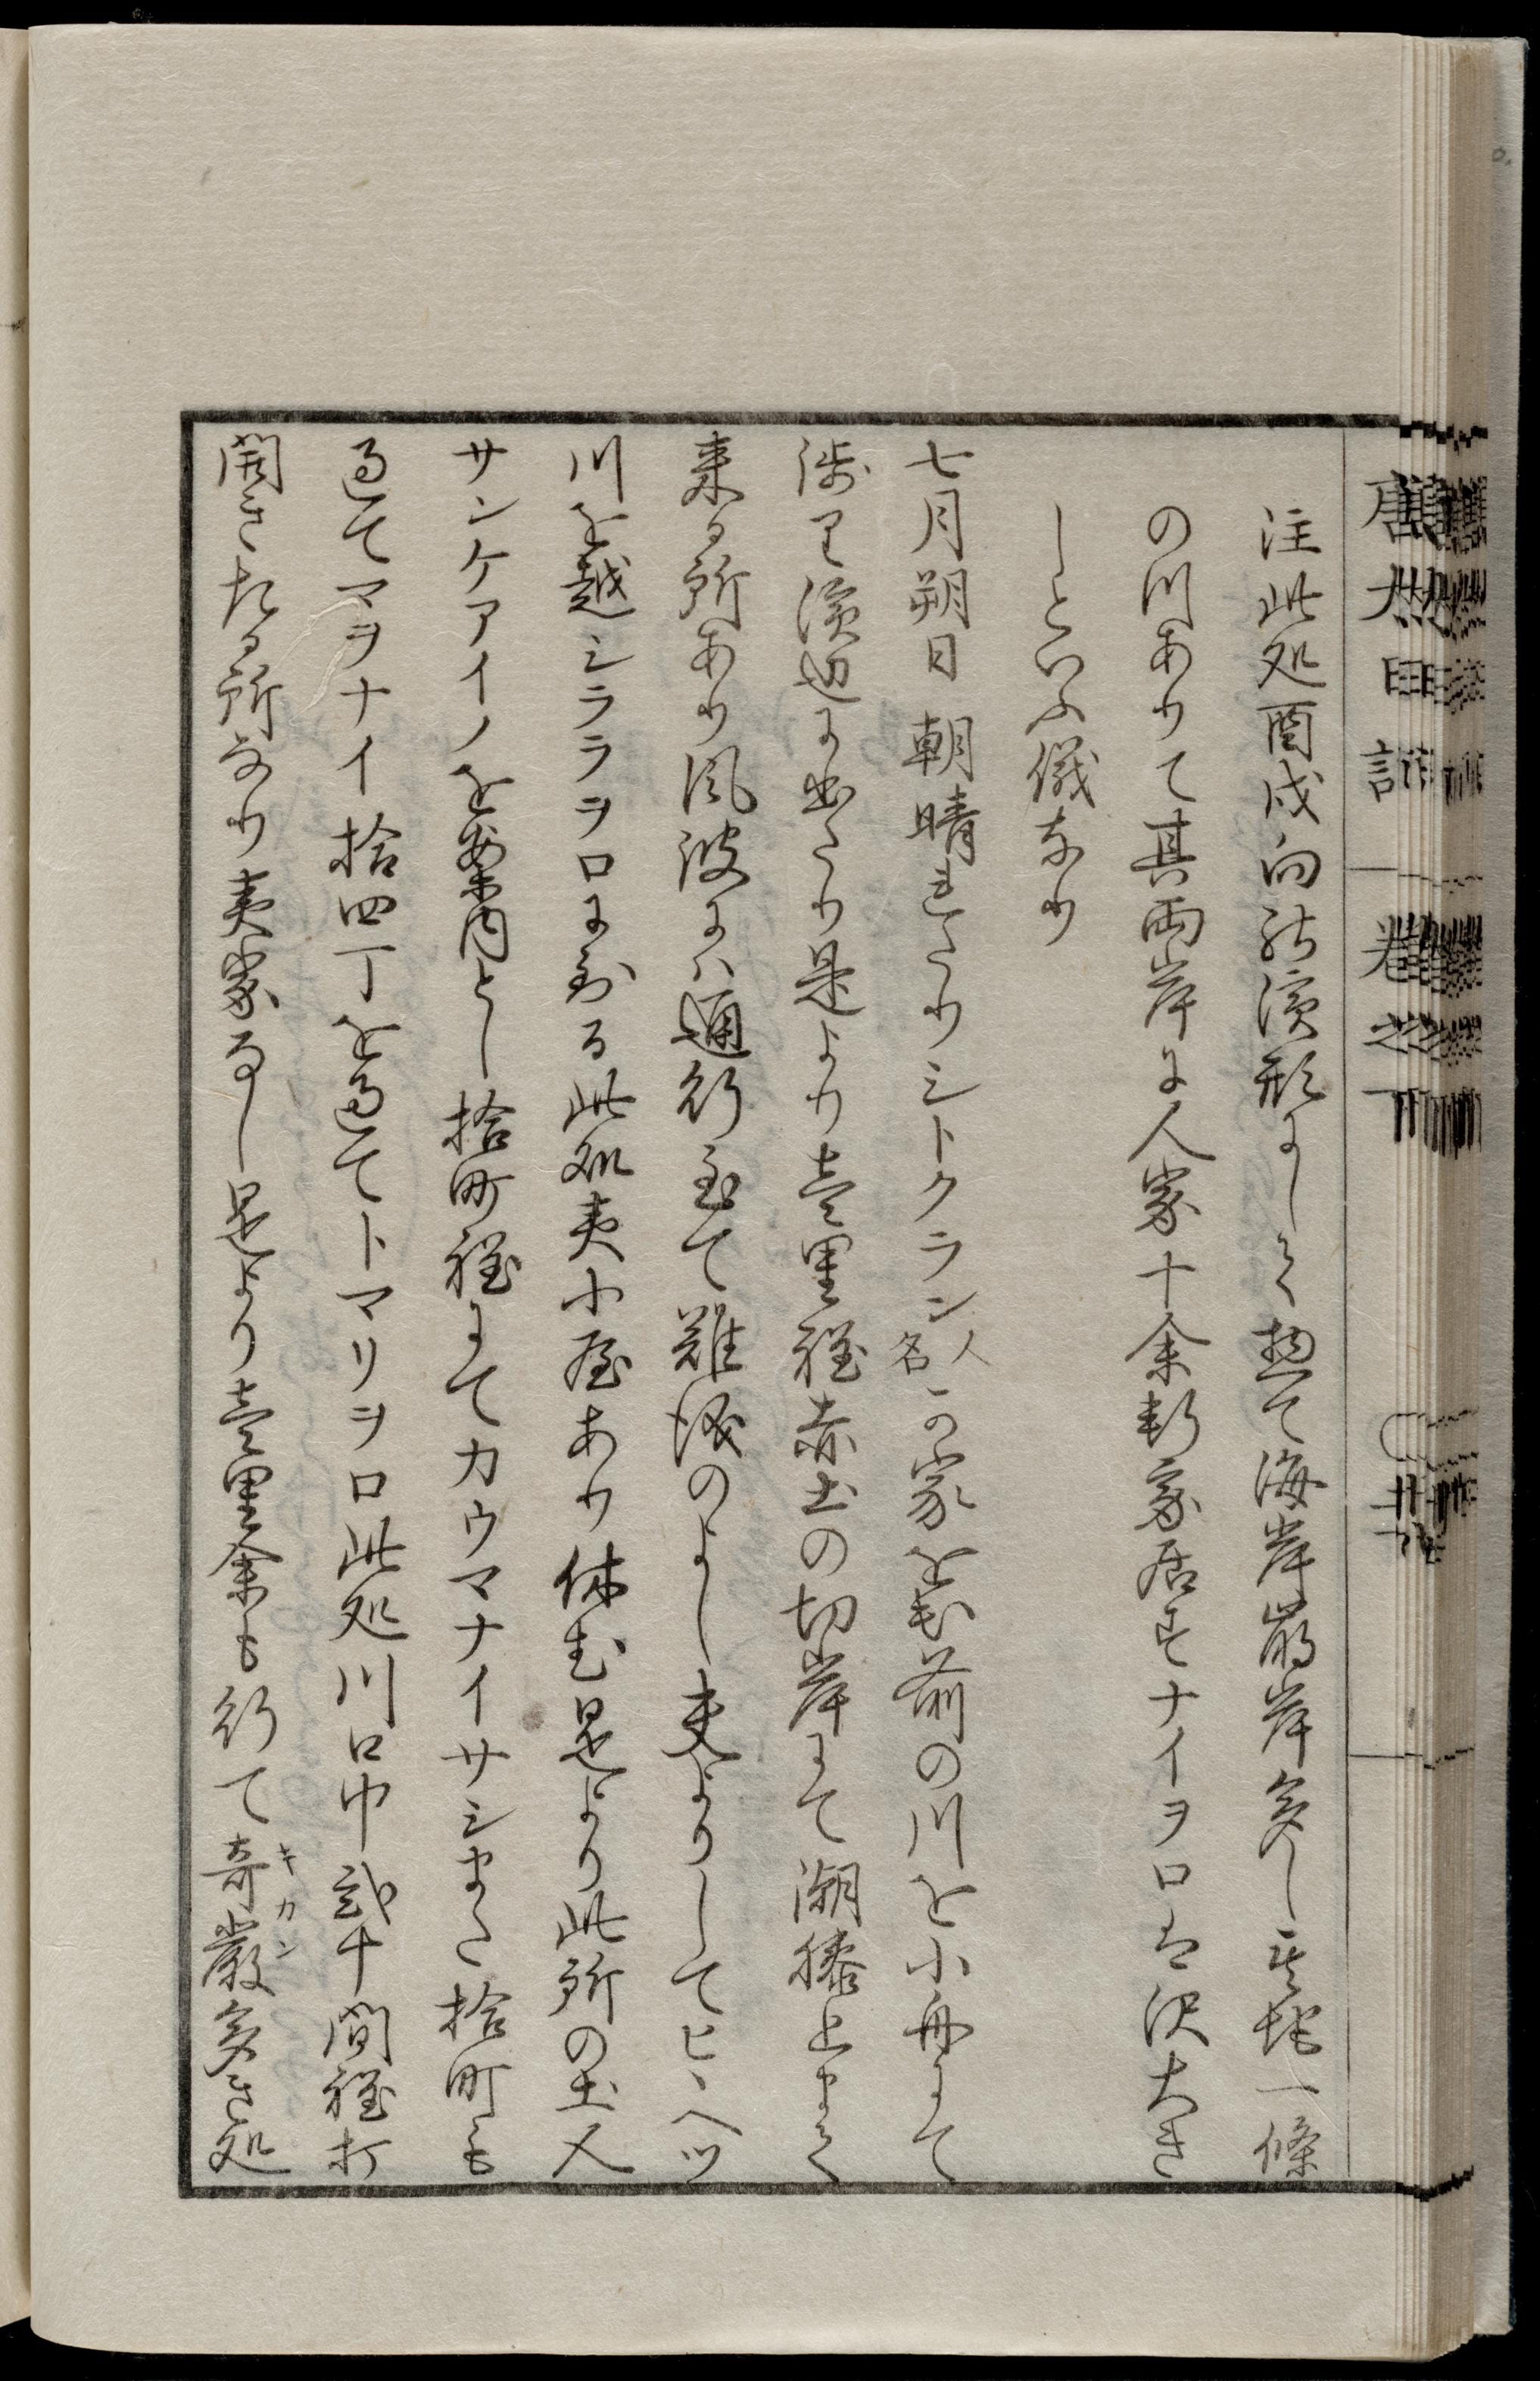 唐太日記 巻之下
注此処酉戌向の濱形にして惣て海岸崩岸多し其地一條
の川ありて其両岸に人家十余軒家居すナイヲロは沢大き
しといふ儀なり
七月朔日朝晴れたりシトクラン人名の家を出前の川を小舟にて
渉り濱辺に出たり是より壹里程赤土の切岸にて潮膝上まで
来る所あり風波にハ通行至て難渋のよし夫よりしてヒヽヘツ
川を越シララヲロに到る此処夷小屋あり休む是より此所の土人
サンケアイノを案内とし拾町程にてカウマナイサシまた拾町も
過てマヲナイ拾四丁を過てトマリヲロ此処川口巾弐十間程打
開きたる所なり夷家なし是より壹里余も行て奇巖多き処
キカン